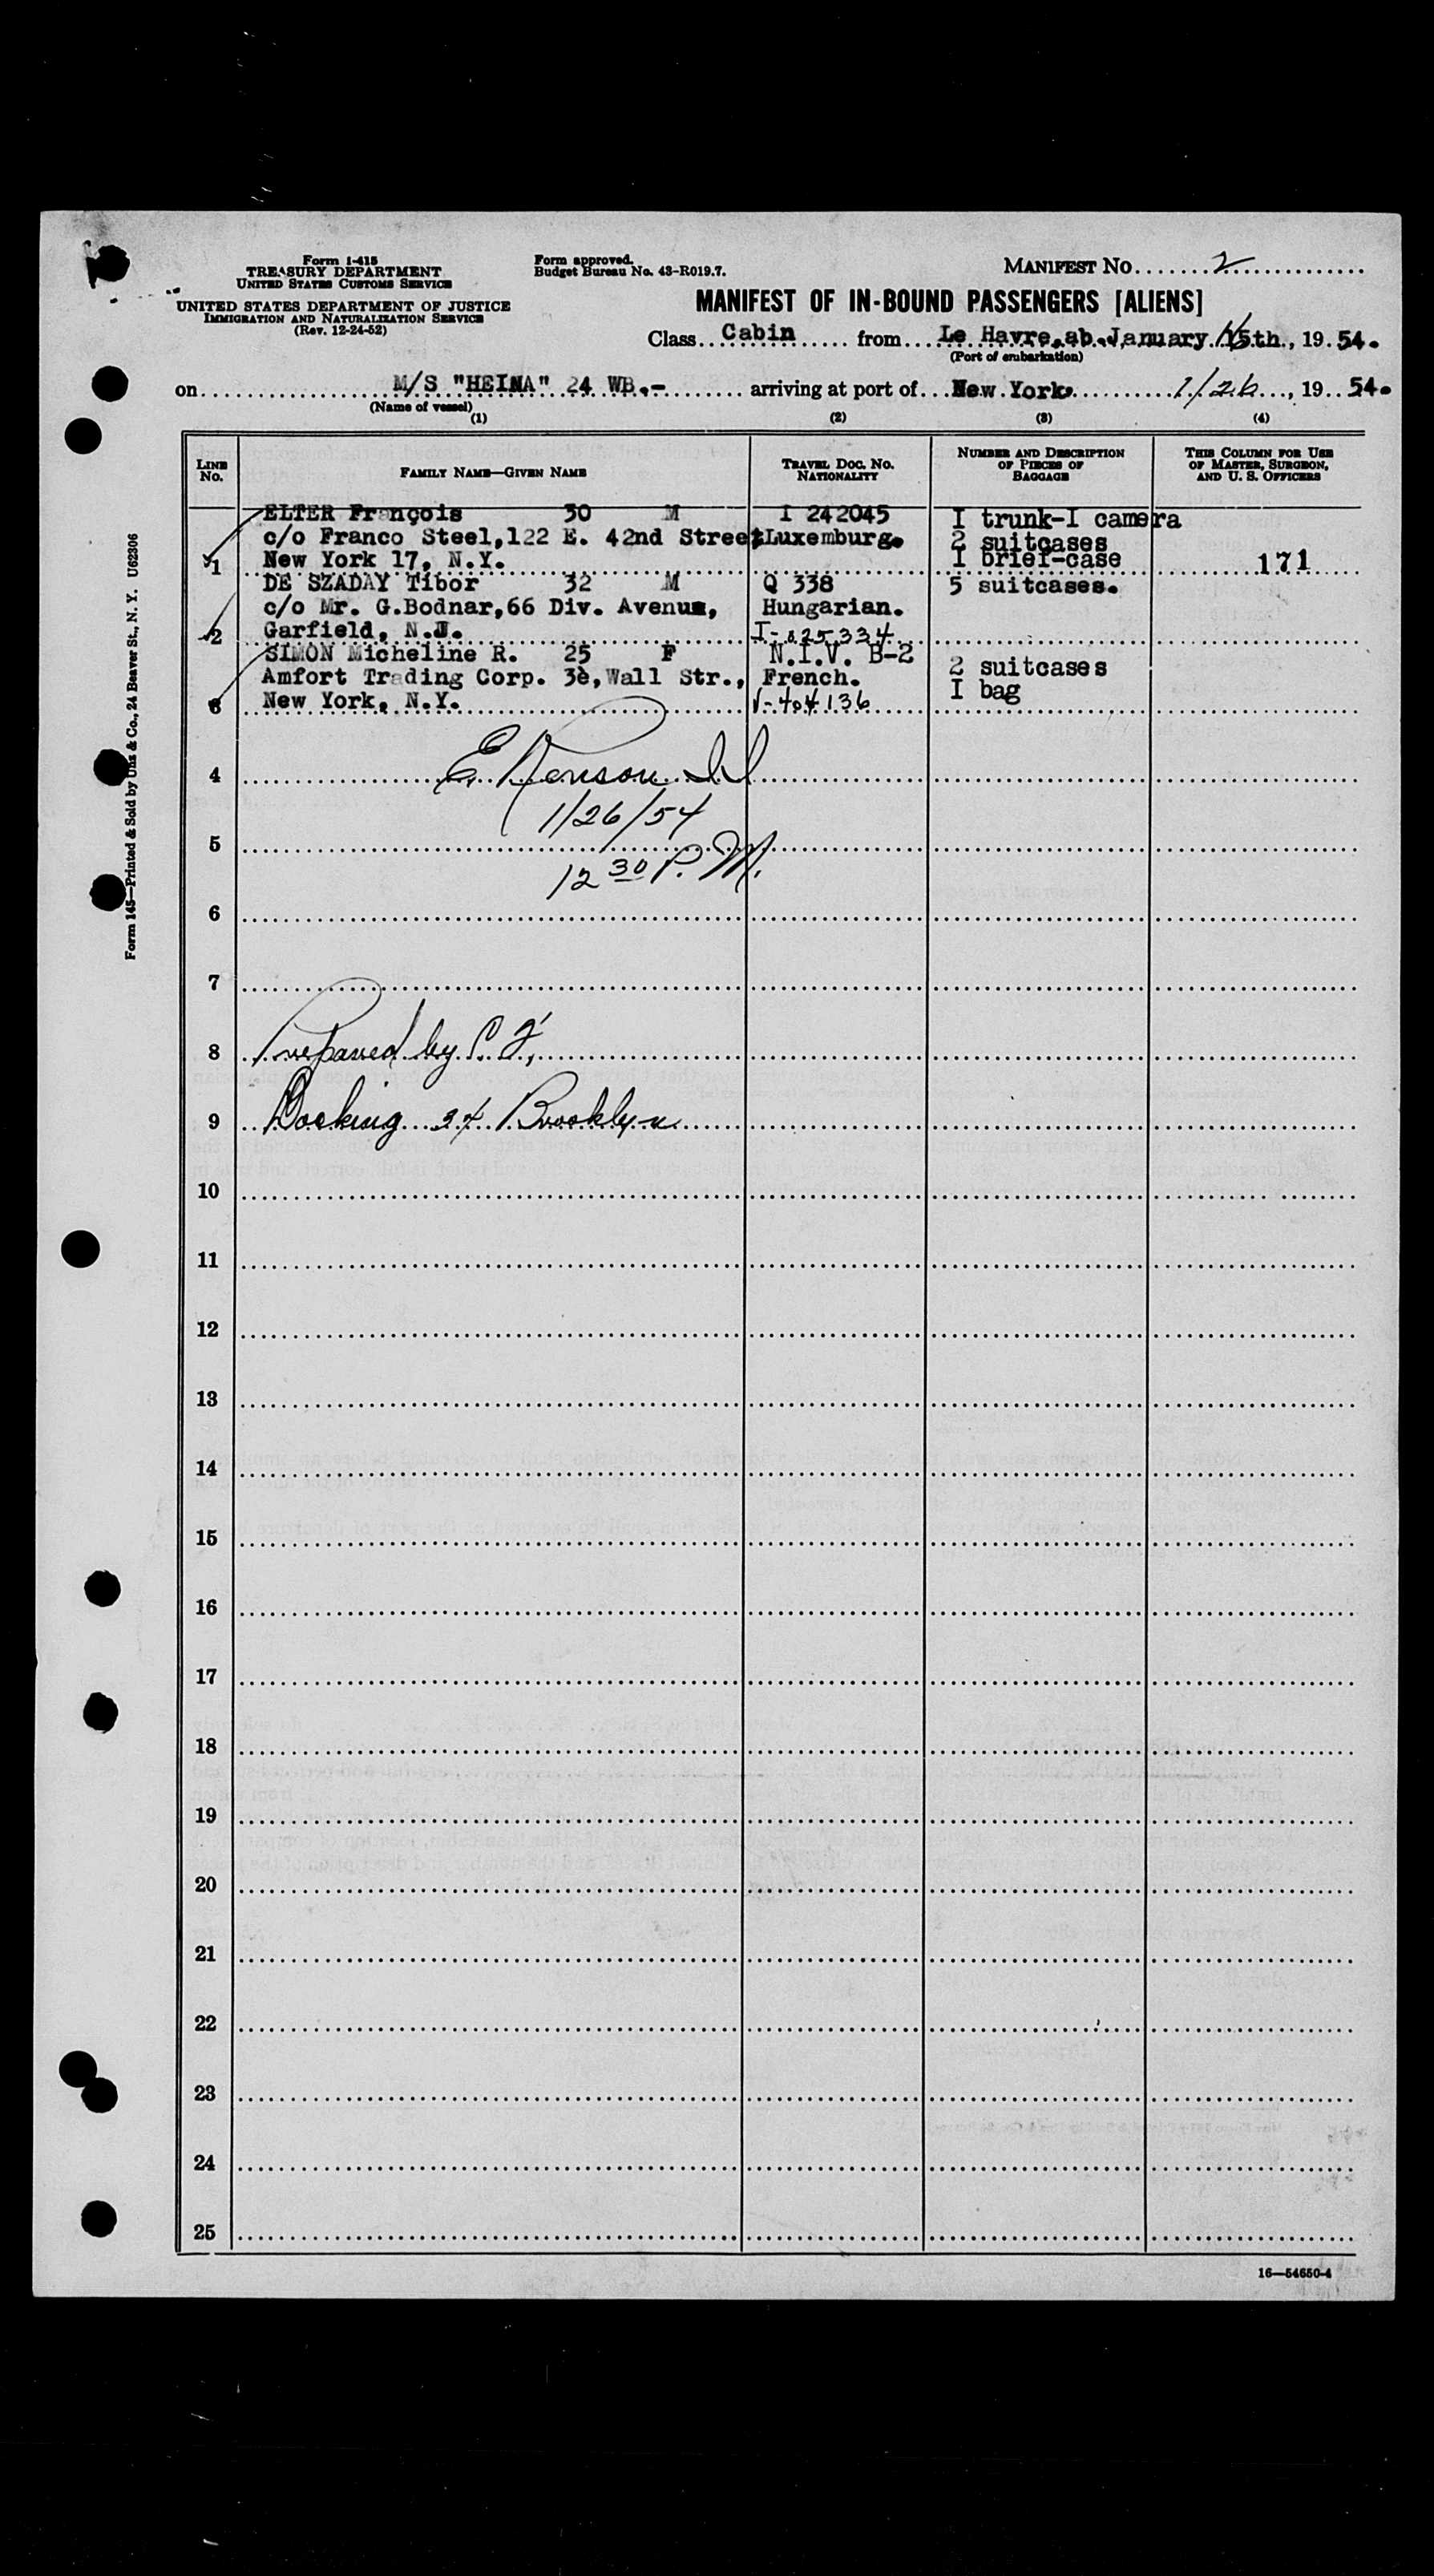 Form I-415
TREASURY DEPARTMENT
UNITED STATES CUSTOMS SERVICE
UNITED STATES DEPARTMENT OF JUSTICE
IMMIGRATION AND NATURALIZATION SERVICE
(Rev. 12-24-52)
Form approved.
Budget Bureau No. 43-R019.7.
MANIFEST NO. 2
MANIFEST OF IN-BOUND PASSENGERS [ALIENS]
Class Cabin from Le Havre, ab. January 15th, 19 54.
(Port of embarkation)
on M/S "HEINA" 24 WB.- arriving at port of New York 1/26, 19 54.
(Name of vessel)
(1) (2) (3) (4)
LINE NO. FAMILY NAME—GIVEN NAME TRAVEL DOC. NO. NATIONALITY NUMBER AND DESCRIPTION OF PIECES OF BAGGAGE THIS COLUMN FOR USE OF MASTER, SURGEON, AND U. S. OFFICERS
ELTER François 30 M I 242045 I trunk-I camera
c/o Franco Steel,122 E. 42nd Street Luxemburg. 2 suitcases
1 New York 17, N.Y. I brief-case 171
DE SZADAY Tibor 32 M Q 338 5 suitcases.
c/o Mr. G.Bodnar,66 Div. Avenue, Hungarian.
2 Garfield, N.J. I-825334
SIMON Micheline R. 25 F N.I.V. B-2 2 suitcases
Amfort Trading Corp. 3è,Wall Str., French. I bag
3 New York, N.Y. V-404136
4 E.
1/26/54
5
12 30 P.M.
6
7
8 Prepared by
9 Docking 34 Brooklyn
10
11
12
13
14
15
16
17
18
19
20
21
22
23
24
25
16—54650-4
Form 145—Printed & Sold by Unz & Co., 24 Beaver St., N. Y. U62306